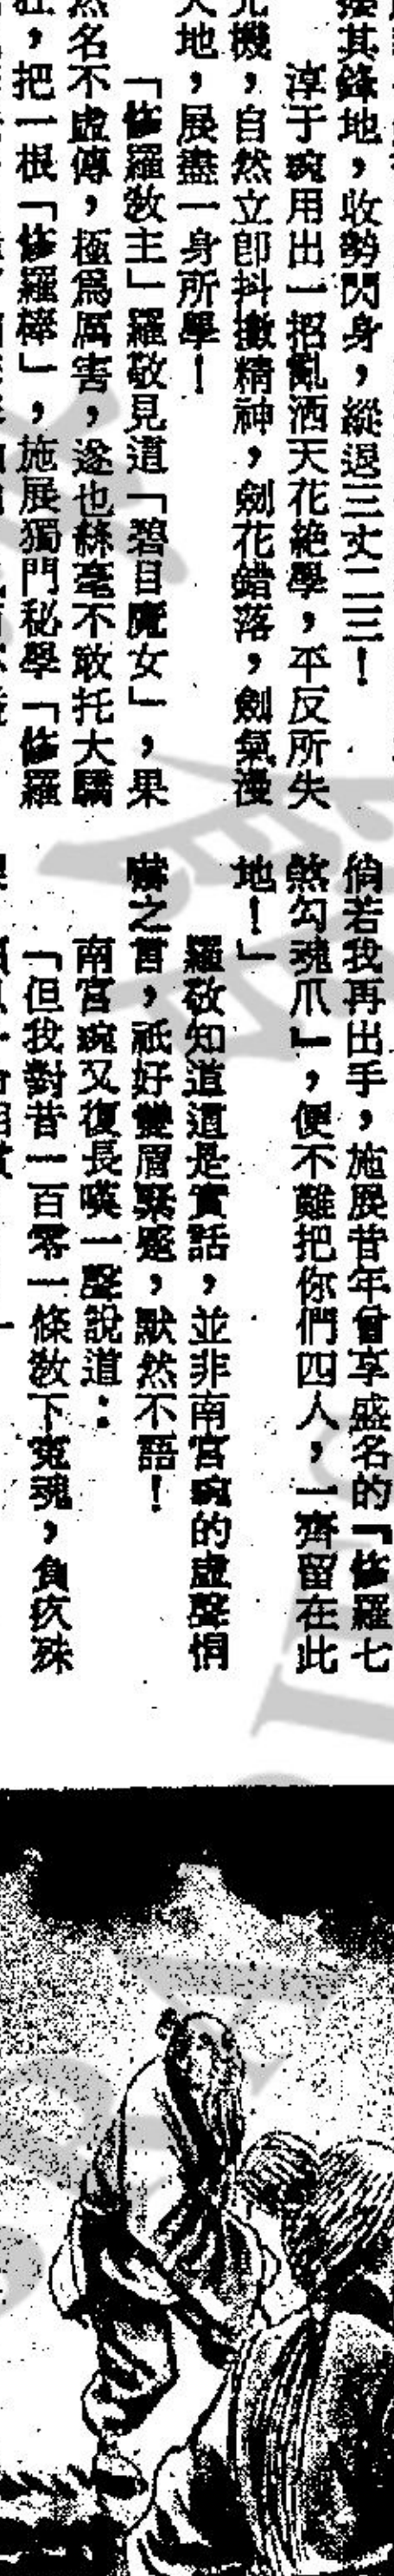 其鋒地，收勢閃身，縱退三丈二三！
淳于琬用出一招亂洒天花絶學，平反所失
機，自然立即抖擻精神，劍花錯落，劍氣漫
天地，展盡一身所學！
「修羅教主」羅敬見這「碧目魔女」，果
然名不虛傳，極爲厲害，遂也絲毫不敢托大驕
狂，把一根「修羅棒」，施展獨門秘學「修羅
倘若我再出手，施展昔年曾享盛名的『修羅七
煞勾魂爪』，便不難把你們四人，一齊留在此
地！」
羅敬知道這是實話，並非南宮琬的虛聲恫
嚇之言，祇好雙眉緊蹙，默然不語！
南宮琬又復長嘆一聲說道：
「但我對昔一百零一條教下冤魂，負疚殊